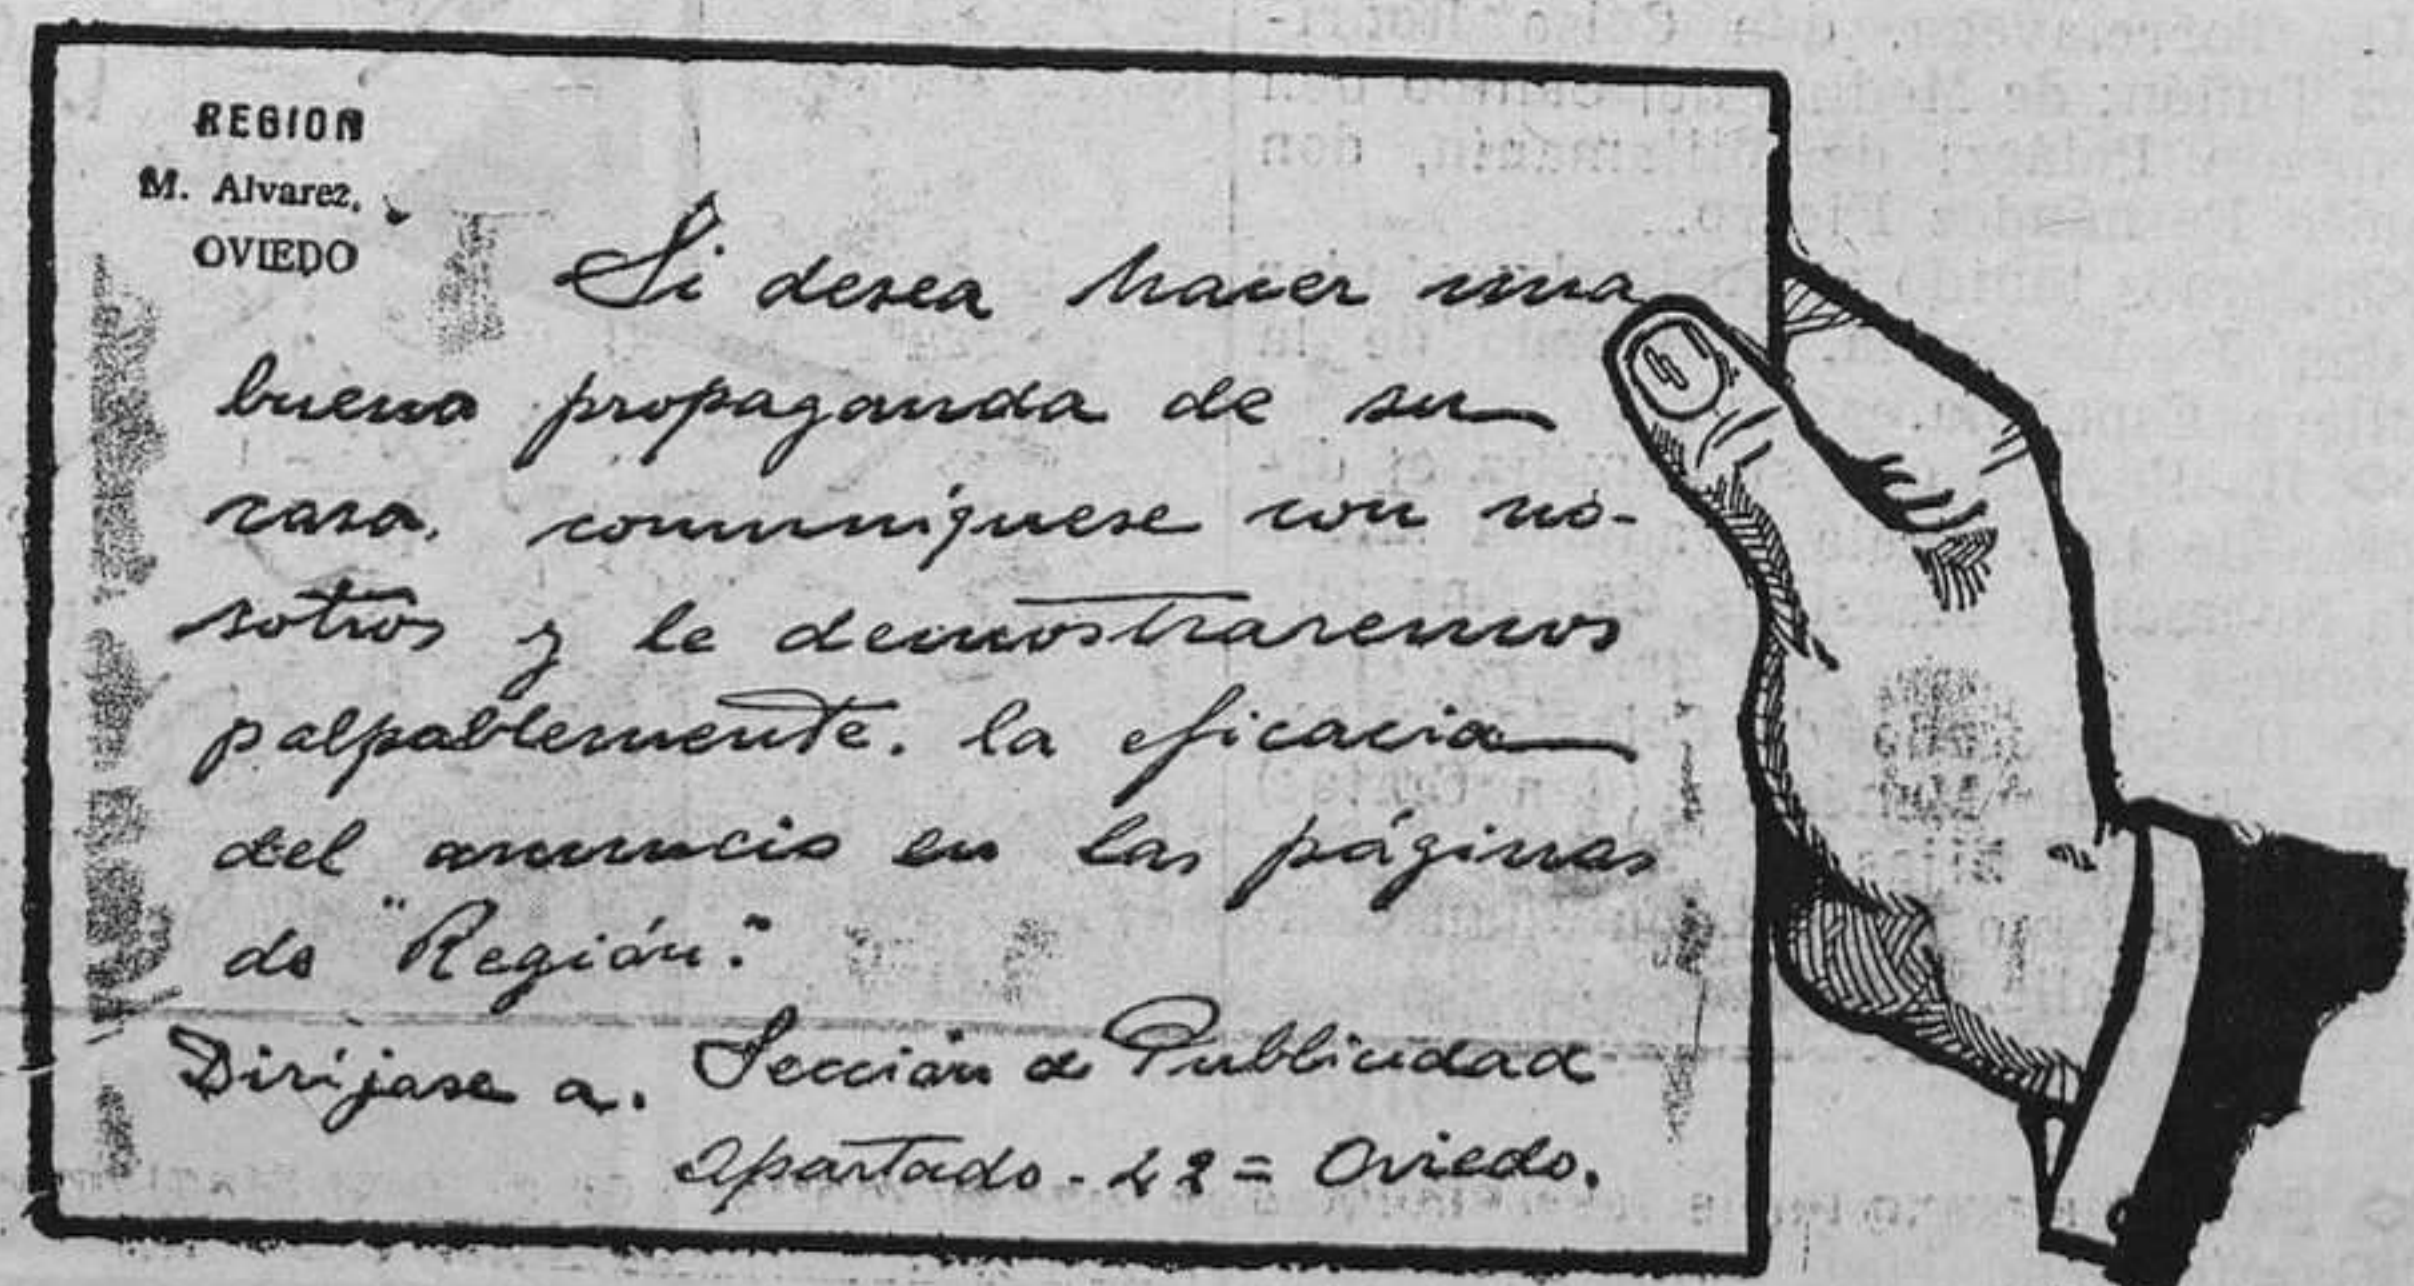 REGION
M. Alvarez,
OVIEDO
Si desea hacer una
buena propaganda de su
casa, comuníquese con no-
sotros y le demostraremos
palpablemente. la eficacia
del anuncio en las páginas
de "Región".
Diríjase a. Sección de Publicidad
Apartado - 42 = Oviedo.